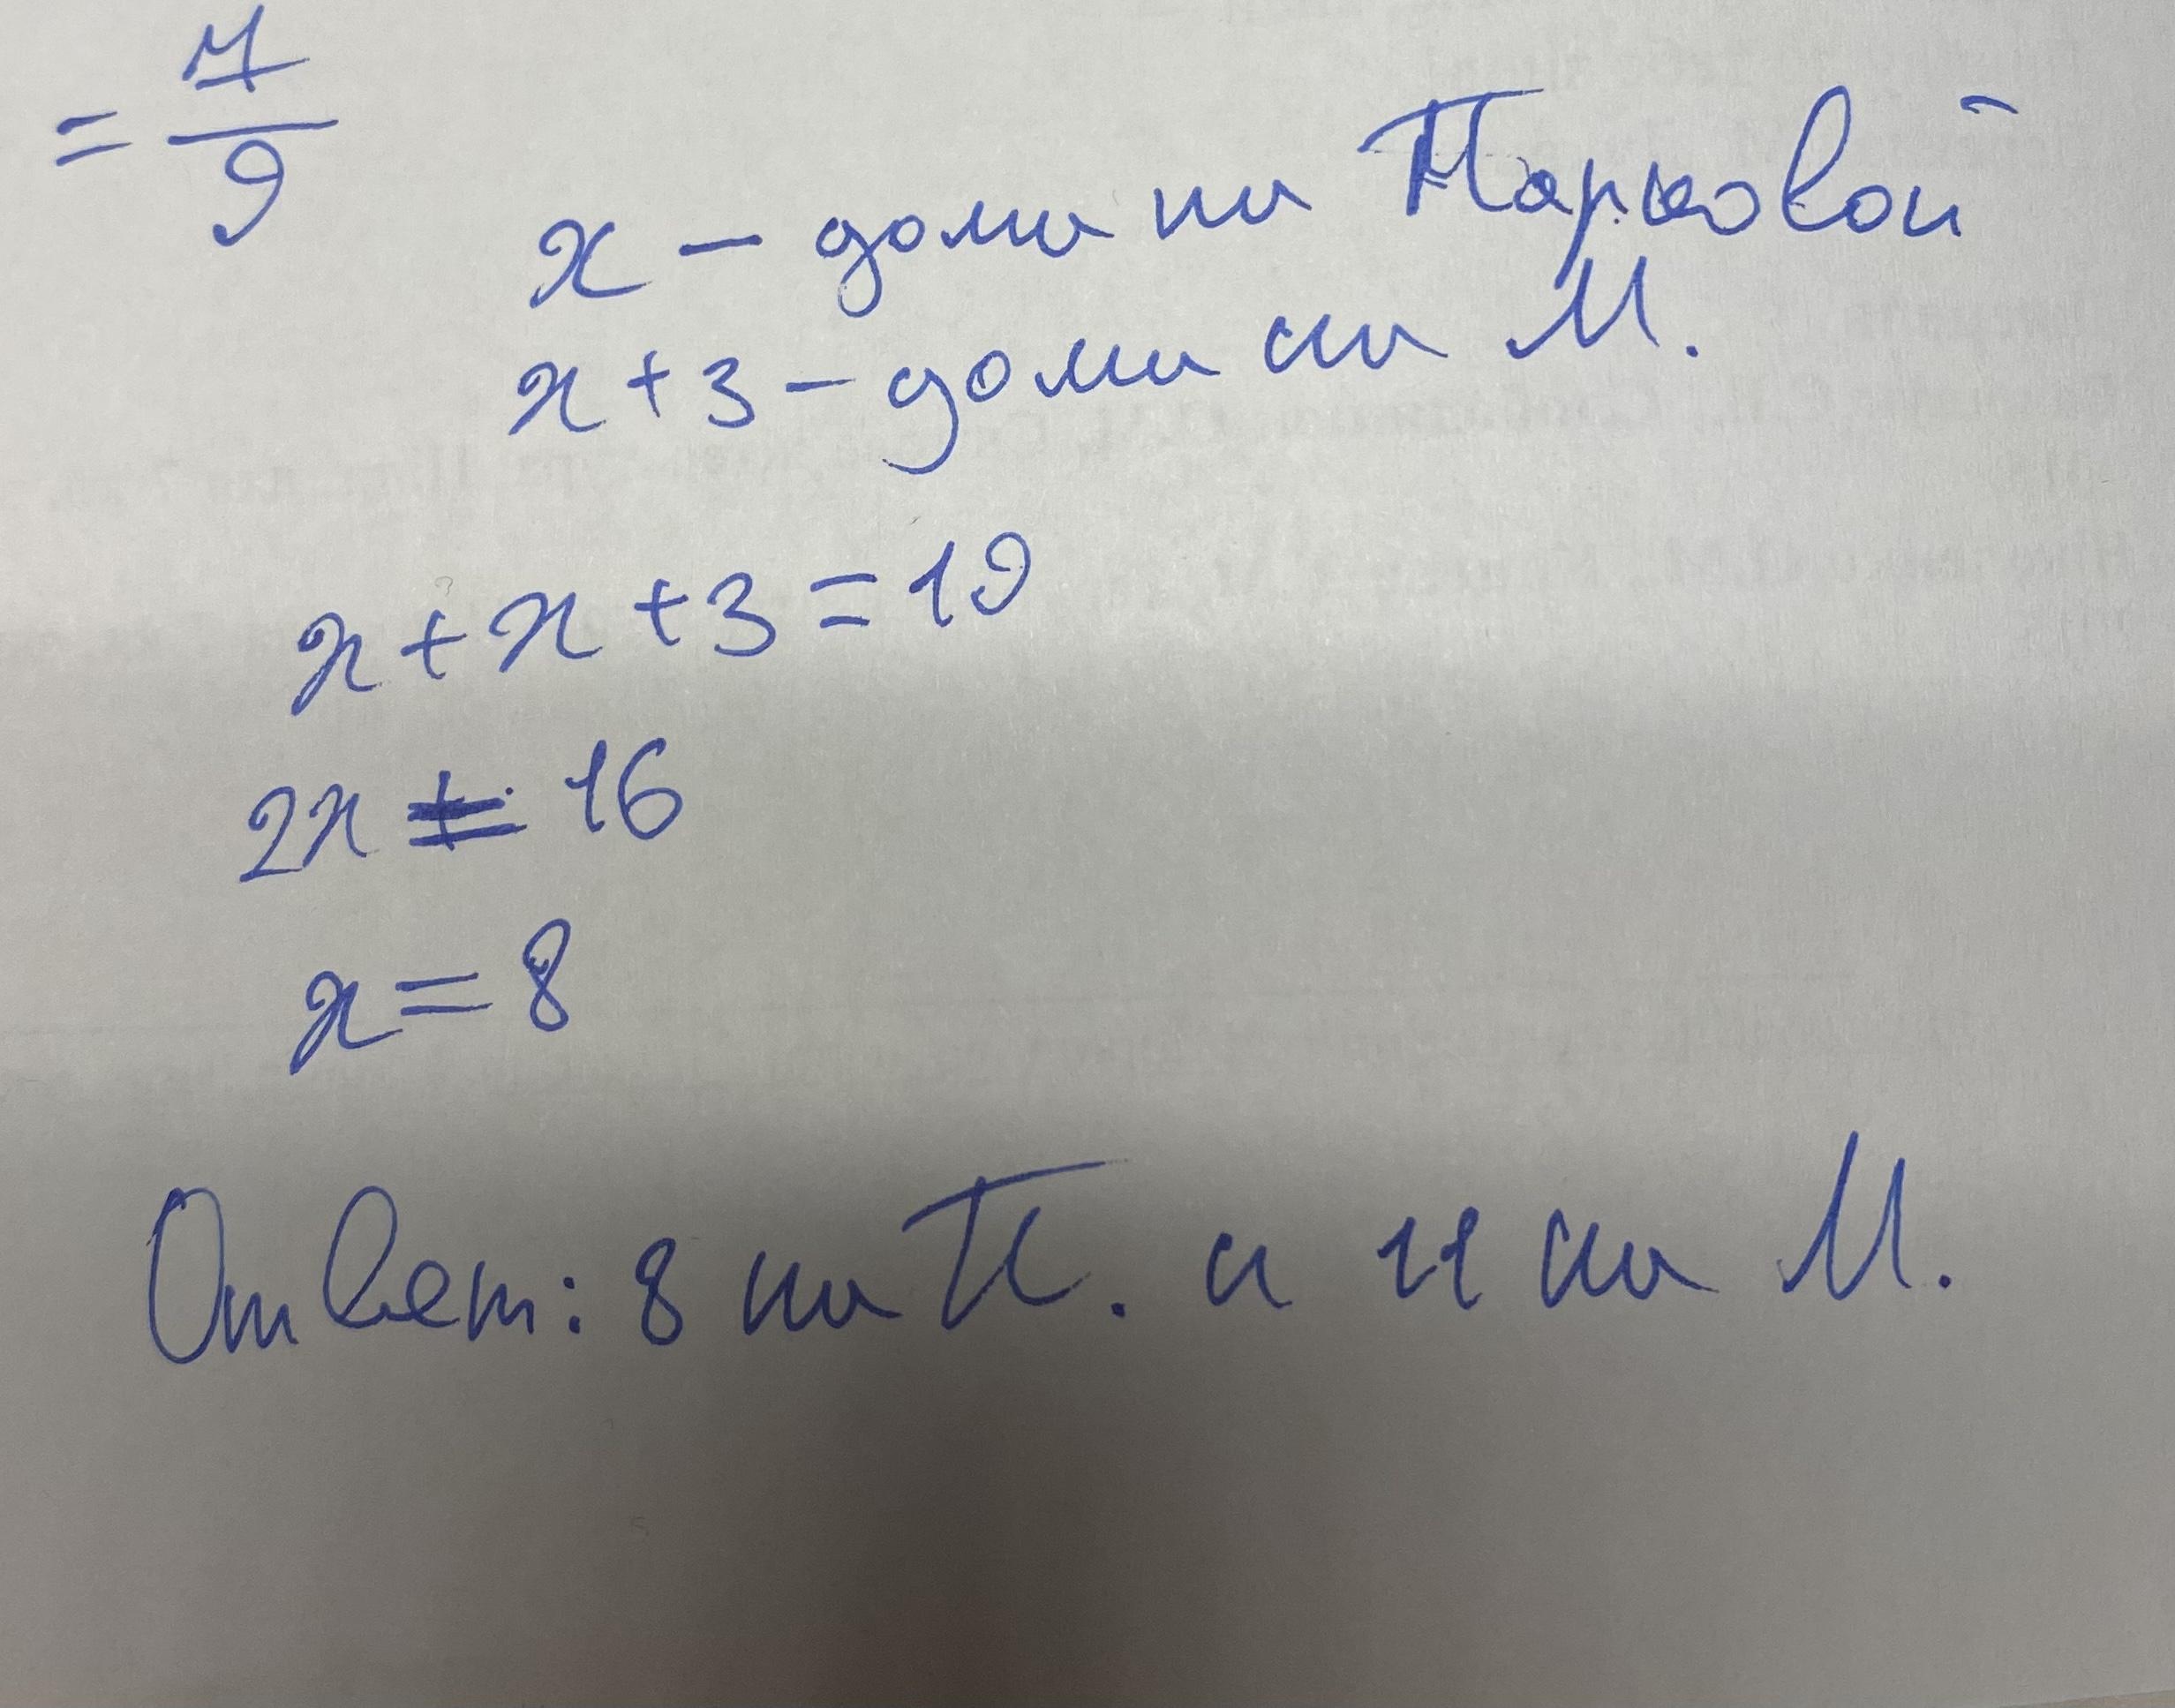 = 7/9
x - дома на Парковой
x + 3 - дома на М.
x + x + 3 = 19
2x = 16
x = 8
Ответ: 8 на П. и 11 на М.